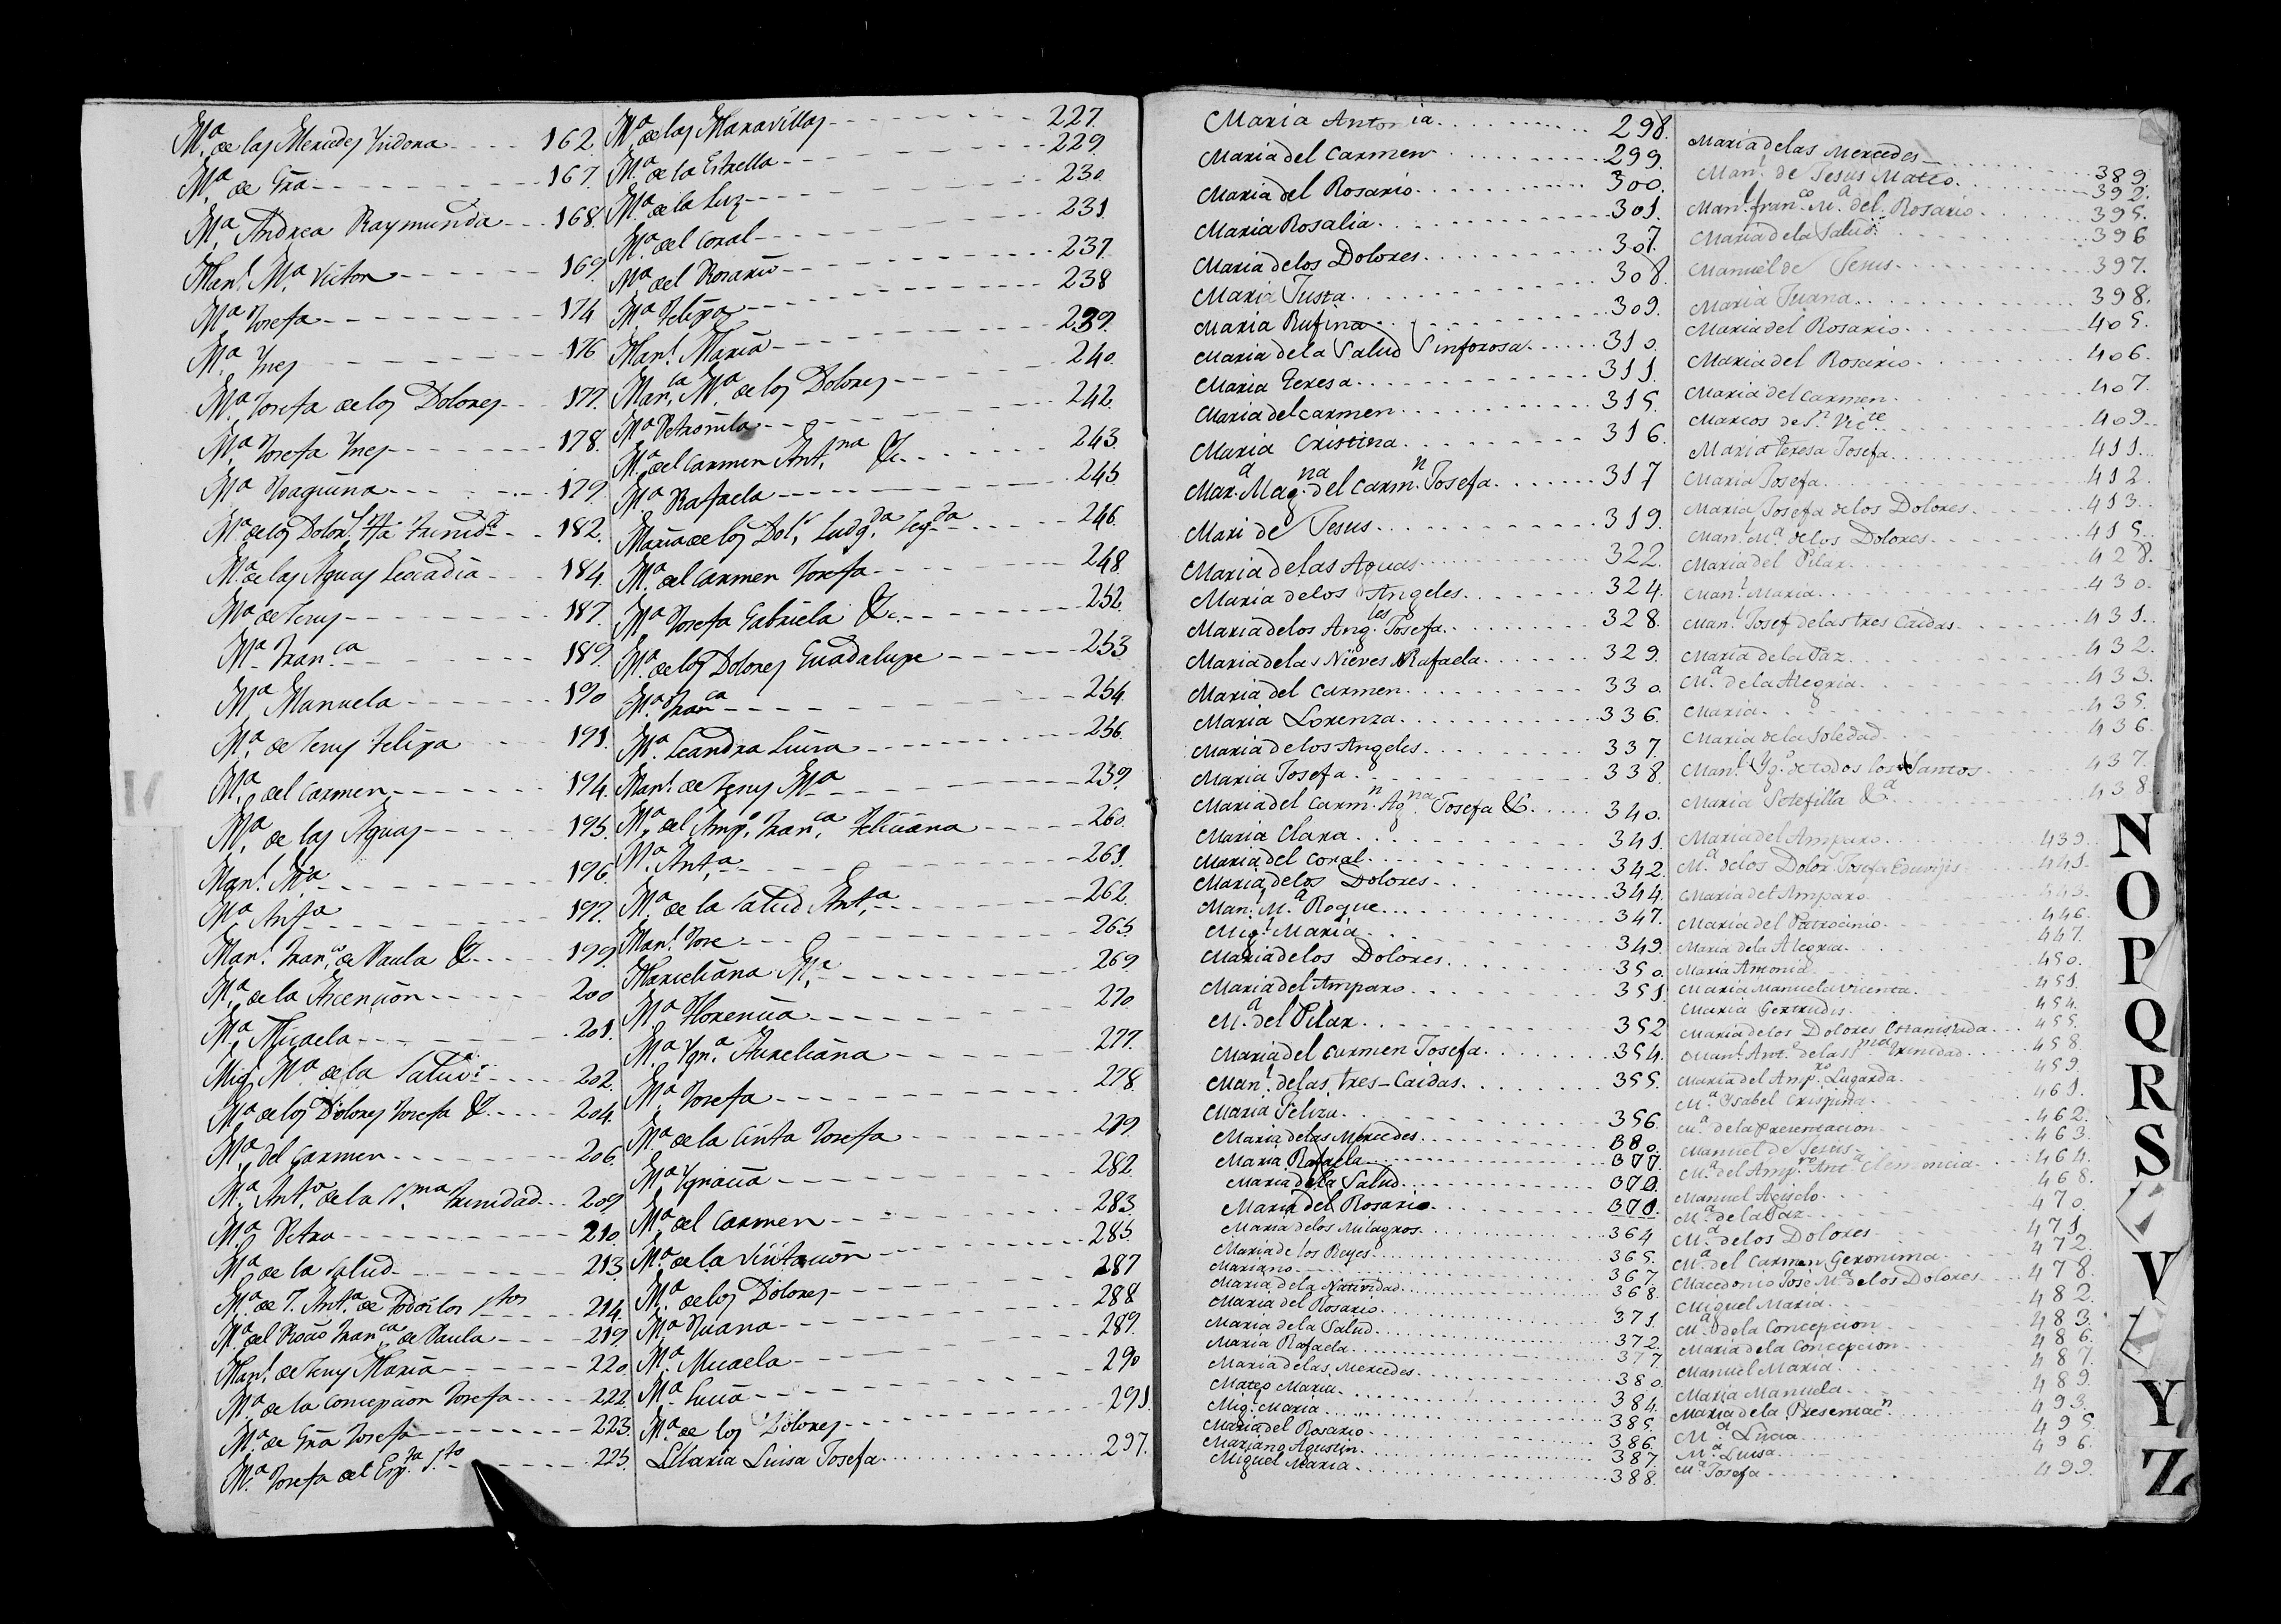 Mª de las Mercedes Ysidora 162.
Mª de Gra 167.
Mª Andrea Raymunda 168.
Manl. Mª Victor 169.
Mª Josefa 174
Mª Ynes 176
Mª Josefa de los Dolores 177.
Mª Josefa Ynes 178.
Mª Joaquina 179.
182.
Mª de las Aguas Leocadia 184.
Mª de Jesus 187.
Mª Franca 189.
Mª Manuela 190
Mª de Jesus Felipa 191.
Mª del Carmen 194.
Mª de las Aguas 195.
Manl. Mª 196.
Mª Anta 197.
Manl. Franco de Paula &. 199.
Mª de la Ascension 200
Mª Micaela 201.
Migl Mª de la Salud 202.
Mª de los Dolores Josefa &. 204.
Mª del Carmen 206.
Mª Anta de la Ssma Trinidad 209
Mª Petra 210.
Mª de la Salud 213.
Mª de J. Anta de Todos los Stos 214.
Mª del Rocio Franca de Paula 219.
Manl. de Jesus Maria 220
Mª de la Concepcion Josefa 222.
Mª de Gra Josefa 223.
Mª Josefa del Espta Sto 225.
Mª de las Maravillas 227
Mª de la Estrella 229.
Mª de la Luz 230.
Mª del Coral 231.
Mª del Rosario 237.
Mª Felipa 238
Manl. Maria 239.
Manca Mª de los Dolores 240.
Mª Petronila 242.
Mª del Carmen Antna &. 243.
Mª Rafaela 245.
Maria de los Dols 246.
Mª del Carmen Josefa 248
Mª Josefa Gabriela &. 252.
Mª de los Dolores Guadalupe 253
Mª Franca 254.
Mª Leandra Luisa 256.
Manl. de Jesus Mª 259.
Mª del Ampo Franca Feliciana 260.
Mª Anta 261.
Mª de la Salud Anta 262.
Manl. Jose 265.
Marcelina Mª 269
Mª Florencia 270
Mª Ygna Aureliana 277.
Mª Josefa 278.
Mª de la Cinta Josefa 279.
Mª Ygnacia 282.
Mª del Carmen 283
Mª de la Visitacion 285.
Mª de los Dolores 287
Mª Juana 288
Mª Micaela 289.
Mª Lucia 290
Mª de los Dolores 291.
Maria Luisa Josefa 297.
Maria Antonia 298.
Maria del Carmen 299.
Maria del Rosario 300.
Maria Rosalia 301.
Maria de los Dolores 307.
Maria Justa 308.
Maria Rufina 309.
Maria de la Salud Sinforosa 310.
Maria Teresa 311.
Maria del Carmen 315.
Maria Cristina 316.
Mara Magna del Carmn Josefa 317
Mari de Jesus 319.
Maria de las Aguas 322.
Maria de los Angeles 324.
Maria de los Angles Josefa 328.
Maria de las Nieves Rafaela 329.
Maria del Carmen 330.
Maria Lorenza 336.
Maria de los Angeles 337
Maria Josefa 338.
Maria del Carmn Agna Josefa &. 340.
Maria Clara 341.
Maria del Coral 342.
Maria de los Dolores 344.
Manl. Mª Roque 347.
Migl. Maria 349.
Maria de los Dolores 350.
Maria del Amparo 351.
Mª del Pilar 352
Maria del Carmen Josefa 354.
Manl. de las tres-Caidas 355.
Maria Feliza 356.
Maria de las Mercedes
Maria Rafaela
Maria de la Salud
Maria del Rosario
Maria de los Milagros 364
Maria de los Reyes 365.
Mariano 367.
Maria de la Natividad 368.
Maria del Rosario 371.
Maria de la Salud 372.
Maria Rafaela 377.
Maria de las Mercedes 380.
Mateo Maria 384.
Migl. Maria 385.
Maria del Rosario 386.
Mariano Agustin 387
Miguel Maria 388.
Maria de las Mercedes 389.
Manl. de Jesus Mateo 392.
Manl. franco Mª del Rosario 395.
Maria de la Salud 396
Manuel de Jesus 397.
Maria Juana 398.
Maria del Rosario 405.
Maria del Rosario 406.
Maria del Carmen 407.
Marcos de Sn Victe 409.
Maria teresa Josefa 411.
Maria Josefa 412.
Maria Josefa de los Dolores 413.
Manl. Mª de los Dolores 415.
Maria del Pilar 428.
Manl. Maria 430.
Manl. Josef de las tres Caidas 431.
Maria de la Paz 432.
Mª de la Alegria 433.
Maria 435.
Maria de la Soledad 436.
Manl. Ygo de todos los Santos 437.
Maria Setefilla &a 438
Maria del Amparo 439.
Mª de los Dolor. Josefa Eduvijis 441.
Maria del Amparo 445.
Maria del Patrocinio 446.
Maria de la Alegria 447.
Maria Antonia 450.
Maria Manuela Vicenta 451.
Maria Gertrudis 454.
Maria de los Dolores Estanislada 455.
Manl. Anto de la Sma trinidad 458.
Maria del Ampro Lugarda 459.
Mª Ysabel Crispina 461.
Mª de la Presentacion 462.
Manuel de Jesus 463.
Mª del Ampro Anta Clemencia 464.
Manuel Acisclo 468.
Mª de la Paz 470.
Mª de los Dolores 471.
Mª del Carmen Geronima 472.
Macedonio Jose Mª de los Dolores 478.
Miguel Maria 482.
Mª de la Concepcion 483.
Maria de la Concepcion 486.
Manuel Maria 487.
Maria Manuela 489.
Maria de la Presentacn 493.
Mª Lucia 495.
Mª Luisa 496.
Mª Josefa 499.
N
O
P
Q
R
S
V
Y
Z